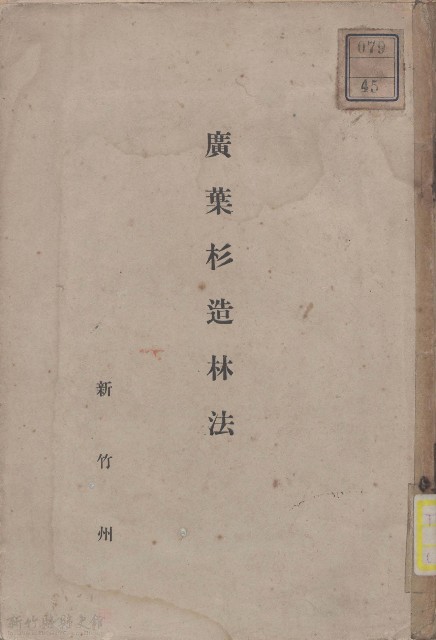 079
45
廣葉杉造林法
新竹州
新竹縣縣史館